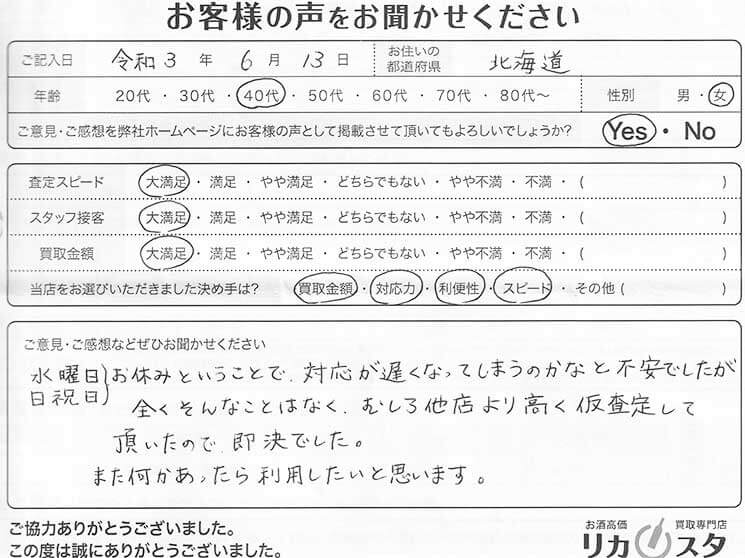 お客様の声をお聞かせください
ご記入日 令和 3 年 6 月 13 日 お住いの都道府県 北海道
年齢 20代 ・ 30代 ・ 40代 ・ 50代 ・ 60代 ・ 70代 ・ 80代〜 性別 男 ・ 女
ご意見・ご感想を弊社ホームページにお客様の声として掲載させて頂いてもよろしいでしょうか? Yes ・ No
査定スピード 大満足 ・ 満足 ・ やや満足 ・ どちらでもない ・ やや不満 ・ 不満 ・ ( )
スタッフ接客 大満足 ・ 満足 ・ やや満足 ・ どちらでもない ・ やや不満 ・ 不満 ・ ( )
買取金額 大満足 ・ 満足 ・ やや満足 ・ どちらでもない ・ やや不満 ・ 不満 ・ ( )
当店をお選びいただきました決め手は? 買取金額 ・ 対応力 ・ 利便性 ・ スピード ・ その他 ( )
ご意見・ご感想などぜひお聞かせください
水曜日
日祝日
}お休みということで、対応が遅くなってしまうのかなと不安でしたが
全くそんなことはなく、むしろ他店より高く仮査定して
頂いたので、即決でした。
また何かあったら利用したいと思います。
ご協力ありがとうございました。
この度は誠にありがとうございました。
お酒高価 買取専門店
リカスタ